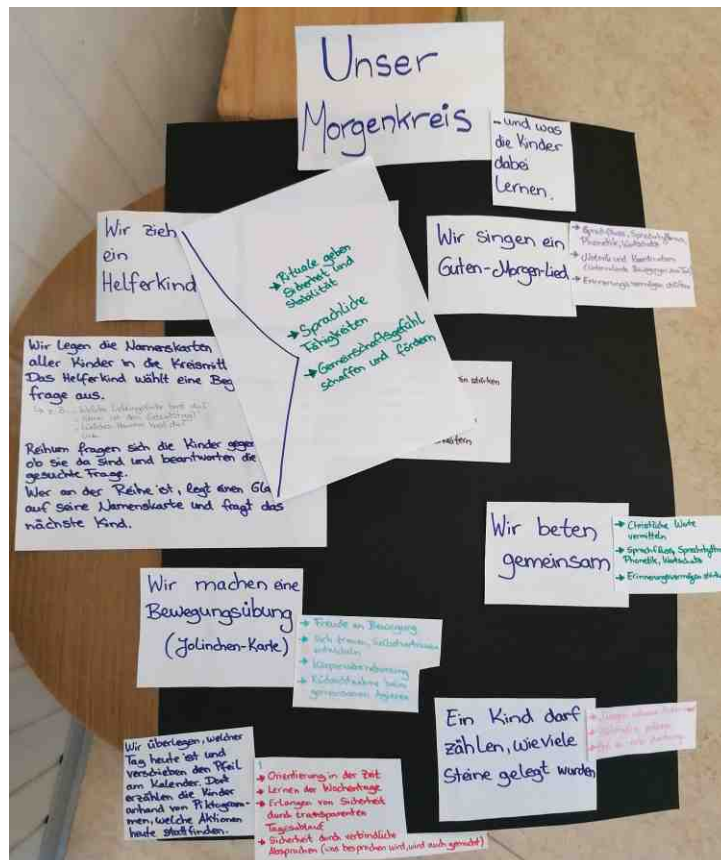 Unser
Morgenkreis
- und was
die Kinder
dabei
Lernen.
Wir zieh
ein
Helferkind
→ Rituale geben
Sicherheit und
Stabilität
→ Sprachliche
Fähigkeiten
→ Gemeinschaftsgefühl
schaffen und fördern
Wir singen ein
Guten-Morgen-Lied
→ Sprachfluss, Sprachrhythmus,
Phonetik, Wortschatz
→ Erinnerungsvermögen stärken
Wir legen die Namenskarten
aller Kinder in die Kreismitt
Das Helferkind wählt eine Beg
frage aus.
Reihum fragen sich die Kinder gegen
ob sie da sind und beantworten die
gesuchte Frage.
Wer an der Reihe ist, legt einen Gla
auf seine Namenskarte und fragt das
nächste Kind.
stärken
Wir beten
gemeinsam
→ Christliche Werte
vermitteln
→ Sprachfluss, Sprachrhythm
Phonetik, Wortschatz
→ Erinnerungsvermögen stärken
Wir machen eine
Bewegungsübung
(Jolinchen-Karte)
→ Freude an Bewegung
→ Sich trauen, Selbstvertrauen
entwickeln
→ Körperwahrnehmung
→ Rücksichtnahme beim
gemeinsamen Agieren
Ein Kind darf
zählen, wieviele
Steine gelegt wurden
Wir überlegen, welcher
Tag heute ist und
verschieben den Pfeil
am Kalender. Dort
erzählen die Kinder
anhand von Piktogram-
men, welche Aktionen
heute stattfinden.
→ Orientierung in der Zeit
→ Lernen der Wochentage
→ Erlangen von Sicherheit
durch transparenten
Tagesablauf
→ Sicherheit durch verbindliche
Absprachen (was besprochen wird, wird auch gemacht)